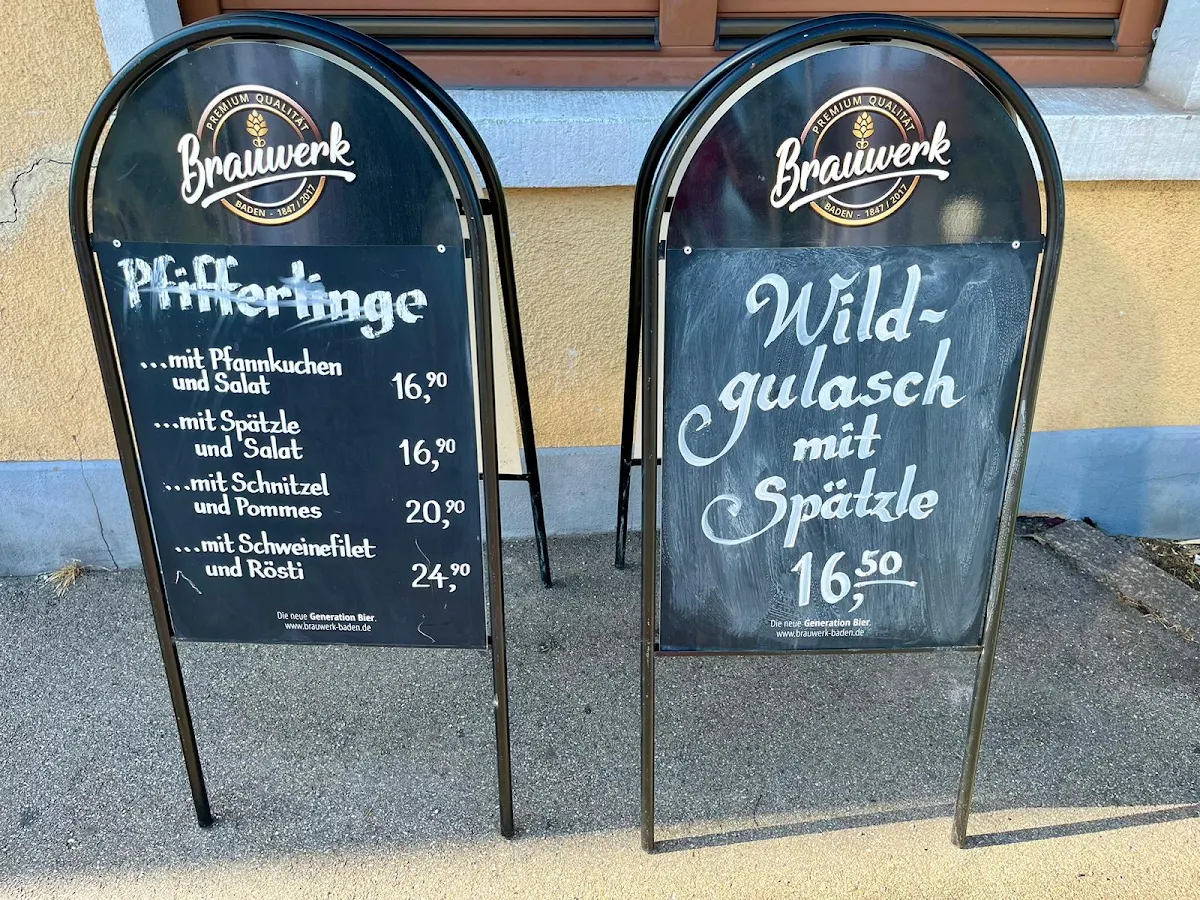 PREMIUM QUALITÄT
Brauwerk
BADEN - 1847 / 2017
Pfifferlinge
...mit Pfannkuchen
und Salat 16,90
...mit Spätzle
und Salat 16,90
...mit Schnitzel
und Pommes 20,90
...mit Schweinefilet
und Rösti 24,90
Die neue Generation Bier.
www.brauwerk-baden.de
PREMIUM QUALITÄT
Brauwerk
BADEN - 1847 / 2017
Wild-
gulasch
mit
Spätzle
16,50
Die neue Generation Bier.
www.brauwerk-baden.de